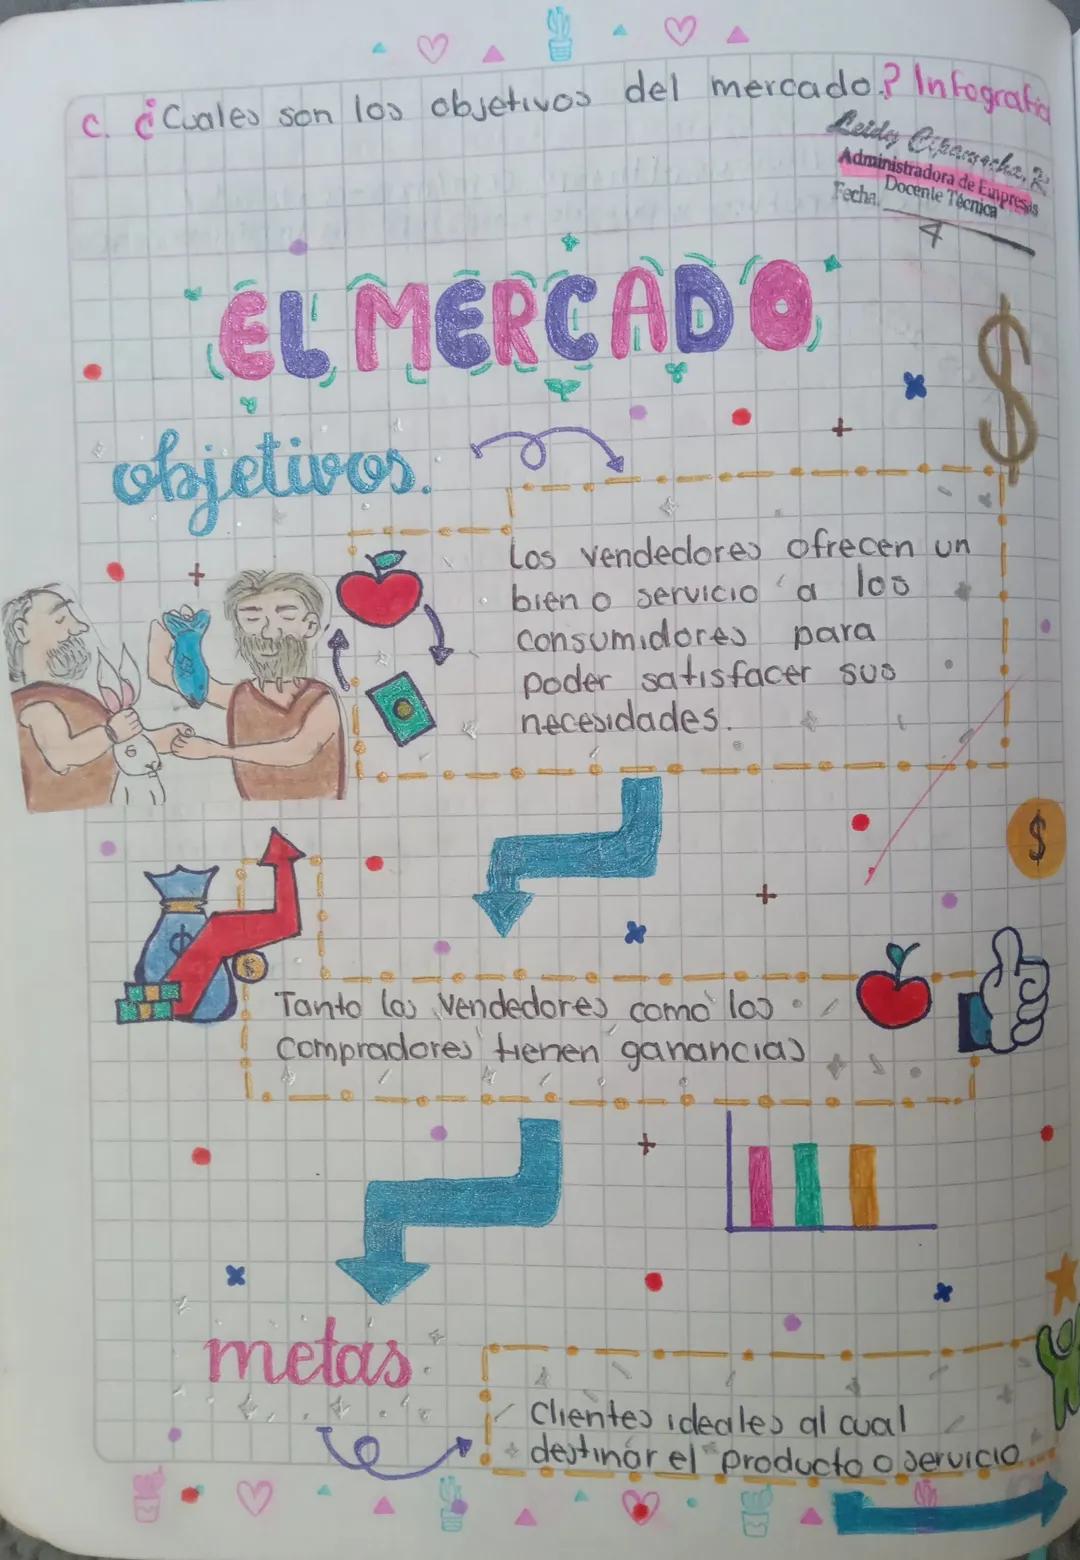 c. ¿Cuales son los objetivos del mercado? Infografia
Administradora de Empresas
Docente Técnica
Fecha
4
EL MERCADO
objetivos.
Los vendedores ofrecen un
bien o servicio a los
consumidores para
poder satisfacer sus
necesidades.
Tanto los vendedores como los
compradores tienen ganancias
metas.
Clientes ideales al cual
destinar el producto o servicio.